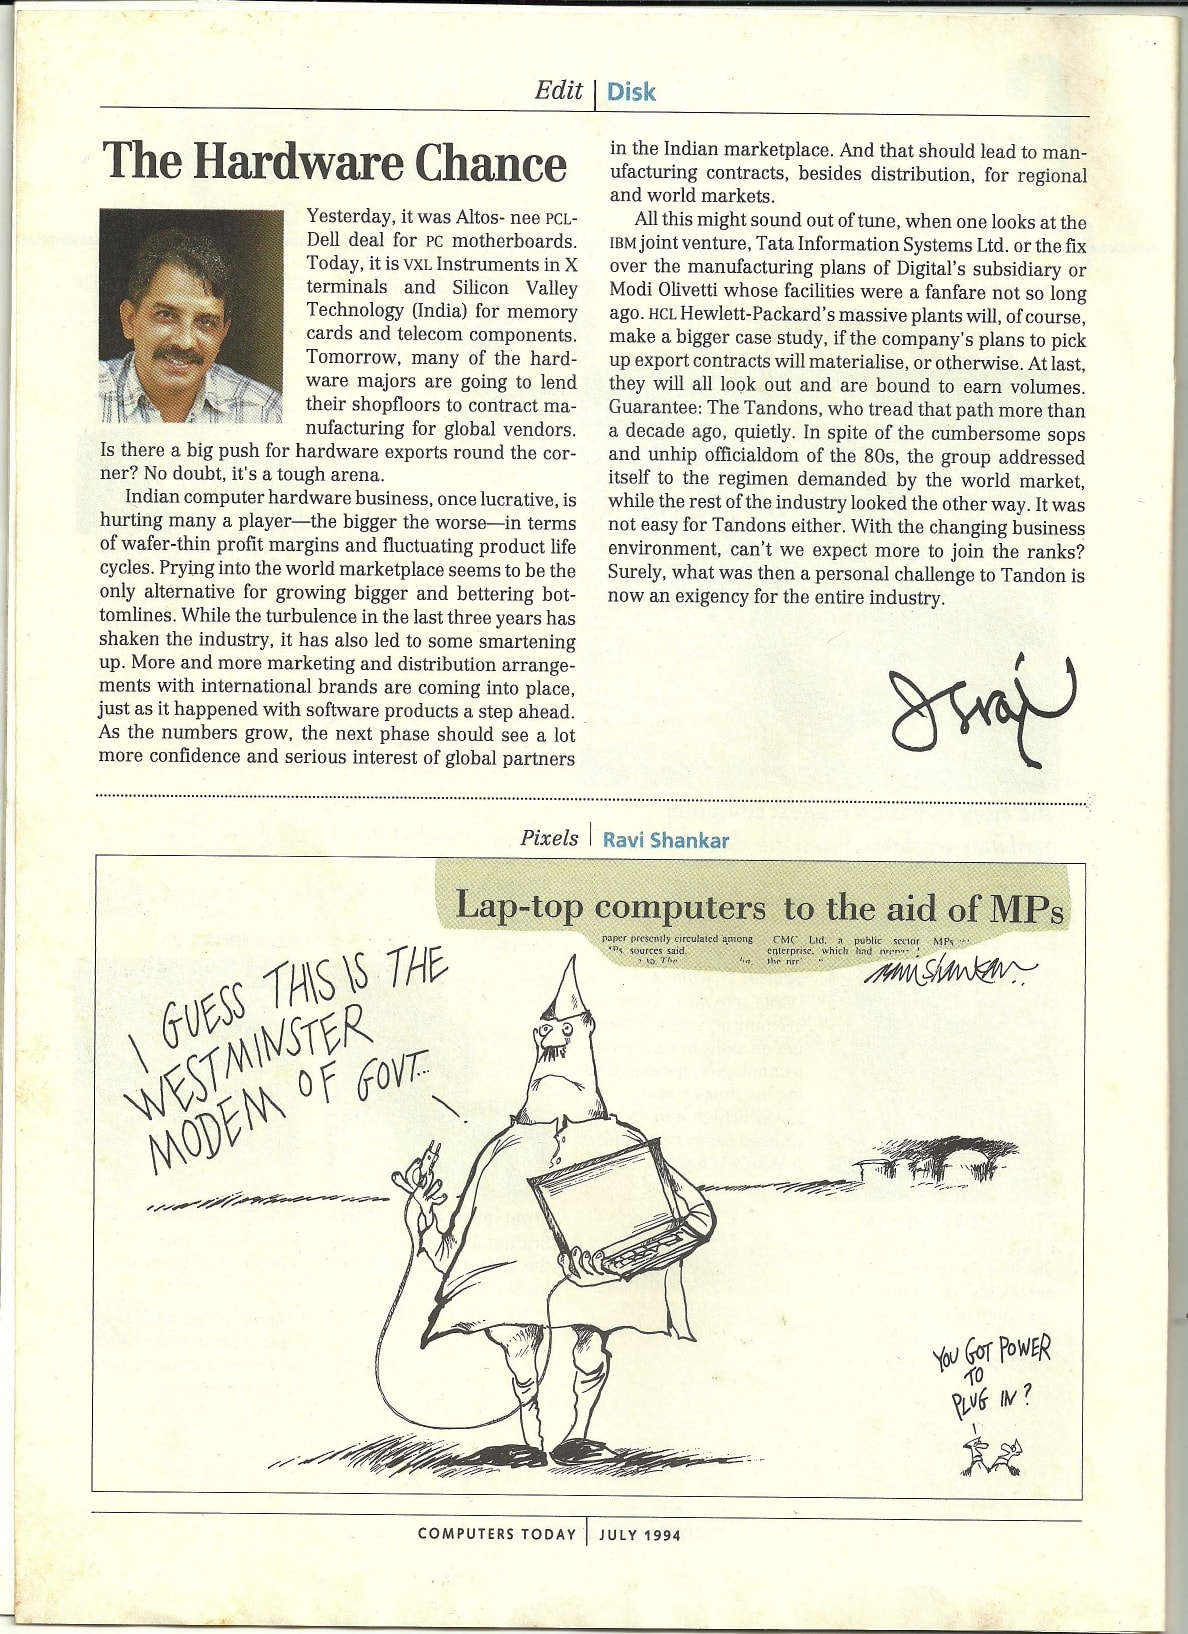 Edit | Disk
The Hardware Chance
Yesterday, it was Altos- nee PCL-
Dell deal for PC motherboards.
Today, it is VXL Instruments in X
terminals and Silicon Valley
Technology (India) for memory
cards and telecom components.
Tomorrow, many of the hard-
ware majors are going to lend
their shopfloors to contract ma-
nufacturing for global vendors.
Is there a big push for hardware exports round the cor-
ner? No doubt, it's a tough arena.
Indian computer hardware business, once lucrative, is
hurting many a player—the bigger the worse—in terms
of wafer-thin profit margins and fluctuating product life
cycles. Prying into the world marketplace seems to be the
only alternative for growing bigger and bettering bot-
tomlines. While the turbulence in the last three years has
shaken the industry, it has also led to some smartening
up. More and more marketing and distribution arrange-
ments with international brands are coming into place,
just as it happened with software products a step ahead.
As the numbers grow, the next phase should see a lot
more confidence and serious interest of global partners
in the Indian marketplace. And that should lead to man-
ufacturing contracts, besides distribution, for regional
and world markets.
All this might sound out of tune, when one looks at the
IBM joint venture, Tata Information Systems Ltd. or the fix
over the manufacturing plans of Digital's subsidiary or
Modi Olivetti whose facilities were a fanfare not so long
ago. HCL Hewlett-Packard's massive plants will, of course,
make a bigger case study, if the company's plans to pick
up export contracts will materialise, or otherwise. At last,
they will all look out and are bound to earn volumes.
Guarantee: The Tandons, who tread that path more than
a decade ago, quietly. In spite of the cumbersome sops
and unhip officialdom of the 80s, the group addressed
itself to the regimen demanded by the world market,
while the rest of the industry looked the other way. It was
not easy for Tandons either. With the changing business
environment, can't we expect more to join the ranks?
Surely, what was then a personal challenge to Tandon is
now an exigency for the entire industry.
Pixels | Ravi Shankar
Lap-top computers to the aid of MPs
paper presently circulated among
sources said.
CMC Ltd, a public sector MPs
enterprise, which had
ravi shankar..
I GUESS THIS IS THE
WESTMINSTER
MODEM OF GOVT...
YOU GOT POWER
TO
PLUG IN?
COMPUTERS TODAY | JULY 1994